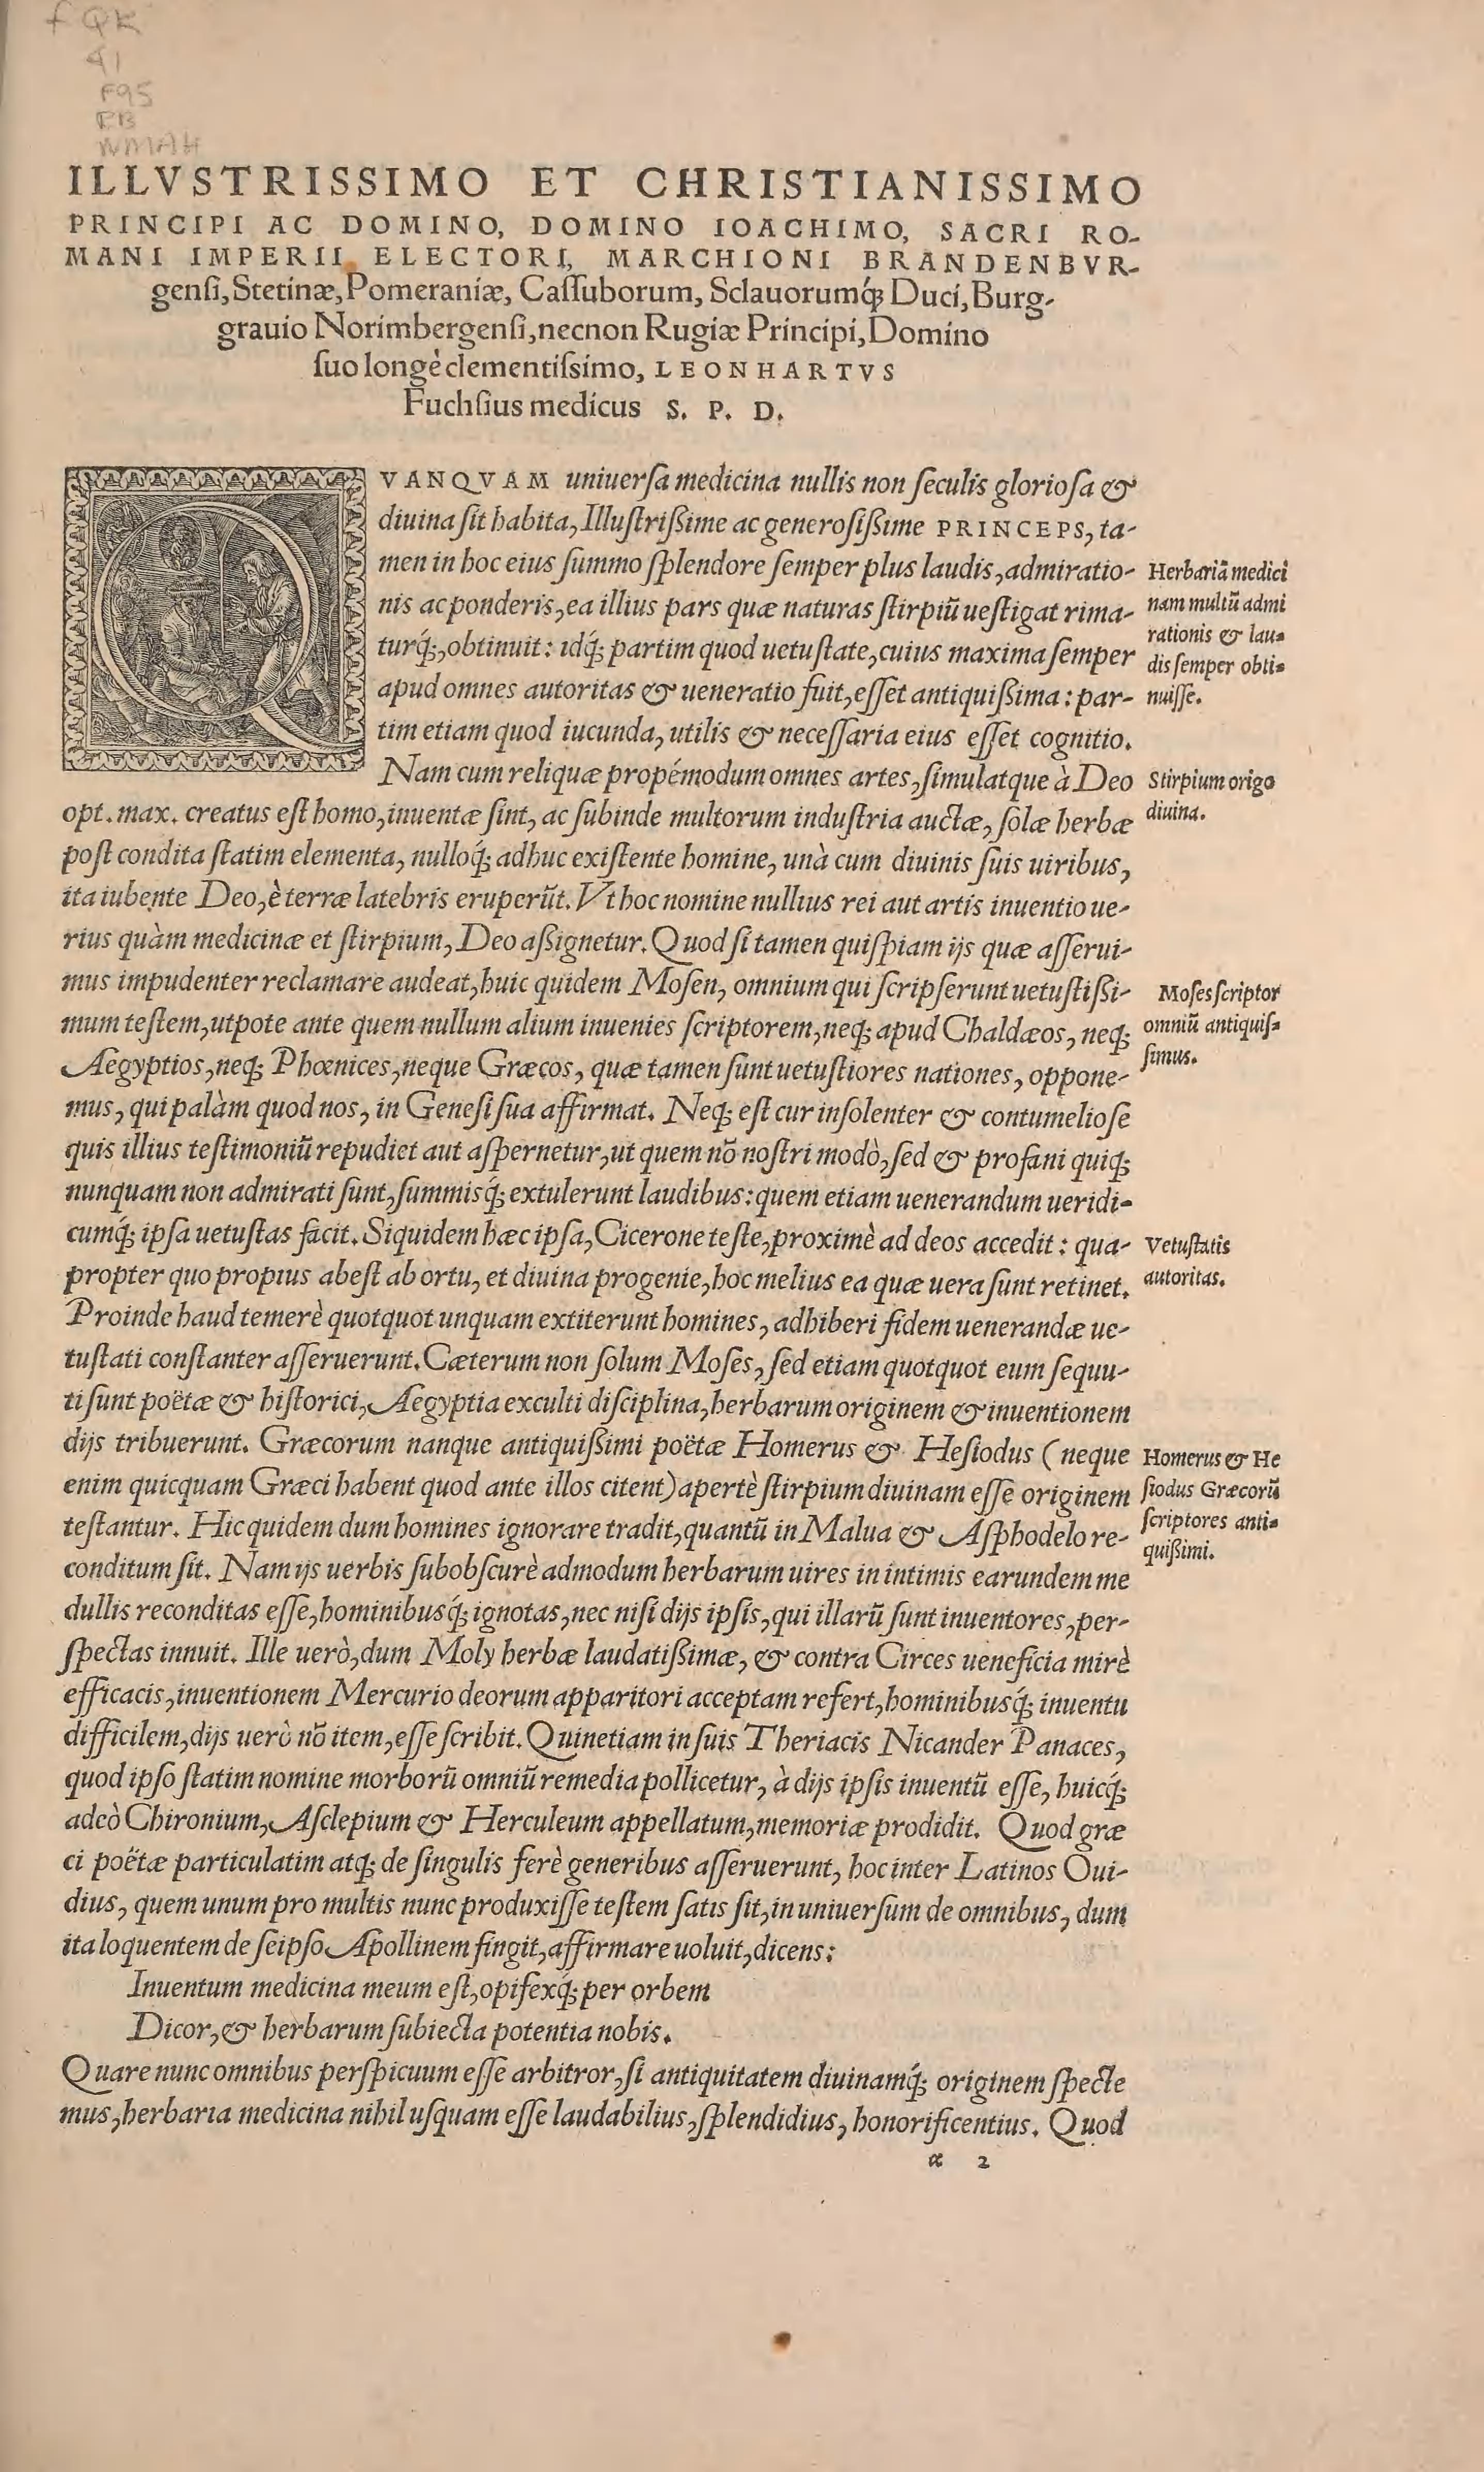 f QK
41
F95
RB
NMAH
ILLVSTRISSIMO ET CHRISTIANISSIMO
PRINCIPI AC DOMINO, DOMINO IOACHIMO, SACRI RO-
MANI IMPERII ELECTORI, MARCHIONI BRANDENBVR-
genſi, Stetinæ, Pomeraniæ, Caſſuborum, Sclauorumq́ꝫ Duci, Burg-
grauio Norimbergenſi, necnon Rugiæ Principi, Domino
ſuo longè clementiſsimo, LEONHARTVS
Fuchſius medicus S. P. D.
QVANQVAM uniuerſa medicina nullis non ſeculis glorioſa &
diuina ſit habita, Illuſtrißime ac generoſißime PRINCEPS, ta-
men in hoc eius ſummo ſplendore ſemper plus laudis, admiratio-
nis ac ponderis, ea illius pars quæ naturas ſtirpiũ ueſtigat rima-
turq́ꝫ, obtinuit: idq́ꝫ partim quod uetuſtate, cuius maxima ſemper
apud omnes autoritas & ueneratio fuit, eſſet antiquißima: par-
tim etiam quod iucunda, utilis & neceſſaria eius eſſet cognitio.
Herbariã medici
nam multũ admi
rationis & lau-
dis ſemper obti-
nuiſſe.
Nam cum reliquæ propémodum omnes artes, ſimulatque à Deo
opt. max. creatus eſt homo, inuentæ ſint, ac ſubinde multorum induſtria auctæ, ſolæ herbæ
Stirpium origo
diuina.
poſt condita ſtatim elementa, nulloq́ꝫ adhuc exiſtente homine, unà cum diuinis ſuis uiribus,
ita iubente Deo, è terræ latebris eruperũt. Vt hoc nomine nullius rei aut artis inuentio ue-
rius quàm medicinæ et ſtirpium, Deo aßignetur. Quod ſi tamen quiſpiam ijs quæ aſſerui-
mus impudenter reclamare audeat, huic quidem Moſen, omnium qui ſcripſerunt uetuſtißi-
mum teſtem, utpote ante quem nullum alium inuenies ſcriptorem, neqꝫ apud Chaldæos, neqꝫ
Ægyptios, neqꝫ Phœnices, neque Græcos, quæ tamen ſunt uetuſtiores nationes, oppone-
Moſes ſcriptor
omniũ antiquiſ-
ſimus.
mus, qui palàm quod nos, in Geneſi ſua affirmat. Neqꝫ eſt cur inſolenter & contumelioſe
quis illius teſtimoniũ repudiet aut aſpernetur, ut quem nõ noſtri modò, ſed & profani quiqꝫ
nunquam non admirati ſunt, ſummisq́ꝫ extulerunt laudibus: quem etiam uenerandum ueridi-
cumq́ꝫ ipſa uetuſtas facit. Siquidem hæc ipſa, Cicerone teſte, proximè ad deos accedit: qua-
propter quo propius abeſt ab ortu, et diuina progenie, hoc melius ea quæ uera ſunt retinet.
Vetuſtatis
autoritas.
Proinde haud temerè quotquot unquam extiterunt homines, adhiberi fidem uenerandæ ue-
tuſtati conſtanter aſſeruerunt. Cæterum non ſolum Moſes, ſed etiam quotquot eum ſequu-
ti ſunt poëtæ & hiſtorici, Ægyptia exculti diſciplina, herbarum originem & inuentionem
dijs tribuerunt. Græcorum nanque antiquißimi poëtæ Homerus & Heſiodus (neque
enim quicquam Græci habent quod ante illos citent) apertè ſtirpium diuinam eſſe originem
teſtantur. Hic quidem dum homines ignorare tradit, quantũ in Malua & Aſphodelo re-
Homerus & He
ſiodus Græcorũ
ſcriptores anti-
quißimi.
conditum ſit. Nam ijs uerbis ſubobſcurè admodum herbarum uires in intimis earundem me
dullis reconditas eſſe, hominibusq́ꝫ ignotas, nec niſi dijs ipſis, qui illarũ ſunt inuentores, per-
ſpectas innuit. Ille uerò, dum Moly herbæ laudatißimæ, & contra Circes ueneficia mirè
efficacis, inuentionem Mercurio deorum apparitori acceptam refert, hominibusq́ꝫ inuentu
difficilem, dijs uerò nõ item, eſſe ſcribit. Quinetiam in ſuis Theriacis Nicander Panaces,
quod ipſo ſtatim nomine morborũ omniũ remedia pollicetur, à dijs ipſis inuentũ eſſe, huicq́ꝫ
adeò Chironium, Aſclepium & Herculeum appellatum, memoriæ prodidit. Quod græ
ci poëtæ particulatim atqꝫ de ſingulis ferè generibus aſſeruerunt, hoc inter Latinos Oui-
dius, quem unum pro multis nunc produxiſſe teſtem ſatis ſit, in uniuerſum de omnibus, dum
ita loquentem de ſeipſo Apollinem fingit, affirmare uoluit, dicens:
Inuentum medicina meum eſt, opifexq́ꝫ per orbem
Dicor, & herbarum ſubiecta potentia nobis.
Quare nunc omnibus perſpicuum eſſe arbitror, ſi antiquitatem diuinamq́ꝫ originem ſpecte
mus, herbaria medicina nihil uſquam eſſe laudabilius, ſplendidius, honorificentius. Quod
α 2